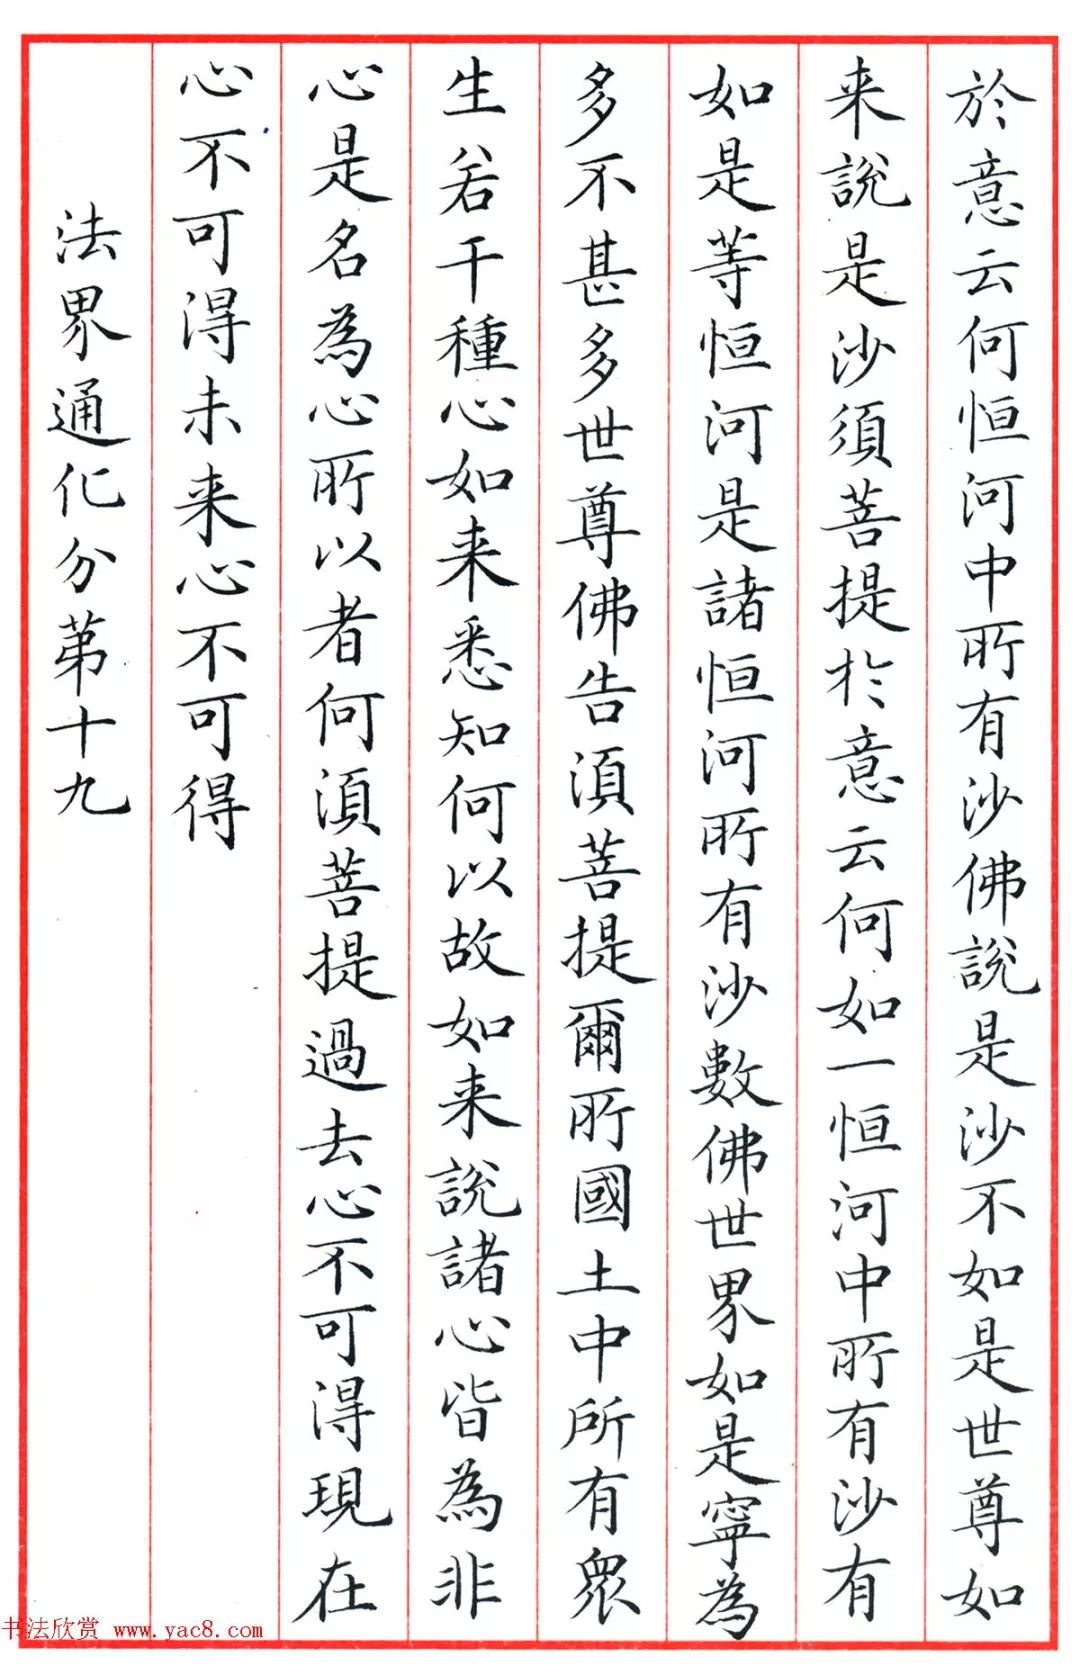 於意云何恒河中所有沙佛說是沙不如是世尊如
来說是沙須菩提於意云何如一恒河中所有沙有
如是等恒河是諸恒河所有沙數佛世界如是寧為
多不甚多世尊佛告須菩提爾所國土中所有眾
生若干種心如来悉知何以故如来說諸心皆為非
心是名為心所以者何須菩提過去心不可得現在
心不可得未来心不可得
法界通化分第十九
书法欣赏 www.yac8.com